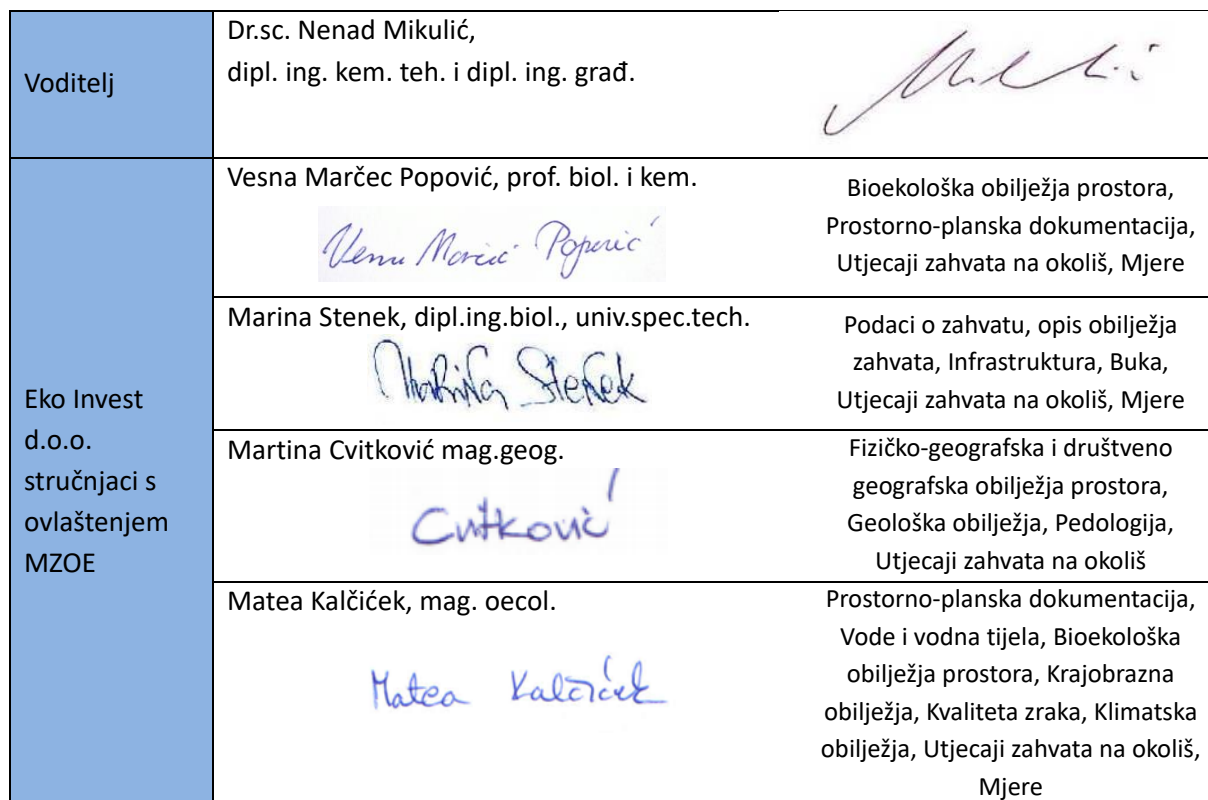 Voditelj
Dr.sc. Nenad Mikulić,
dipl. ing. kem. teh. i dipl. ing. građ.
Eko Invest
d.o.o.
stručnjaci s
ovlaštenjem
MZOE
Vesna Marčec Popović, prof. biol. i kem.
Bioekološka obilježja prostora,
Prostorno-planska dokumentacija,
Utjecaji zahvata na okoliš, Mjere
Marina Stenek, dipl.ing.biol., univ.spec.tech.
Marina Stenek
Podaci o zahvatu, opis obilježja
zahvata, Infrastruktura, Buka,
Utjecaji zahvata na okoliš, Mjere
Martina Cvitković mag.geog.
Cvitković
Fizičko-geografska i društveno
geografska obilježja prostora,
Geološka obilježja, Pedologija,
Utjecaji zahvata na okoliš
Matea Kalčićek, mag. oecol.
Matea Kalčićek
Prostorno-planska dokumentacija,
Vode i vodna tijela, Bioekološka
obilježja prostora, Krajobrazna
obilježja, Kvaliteta zraka, Klimatska
obilježja, Utjecaji zahvata na okoliš,
Mjere